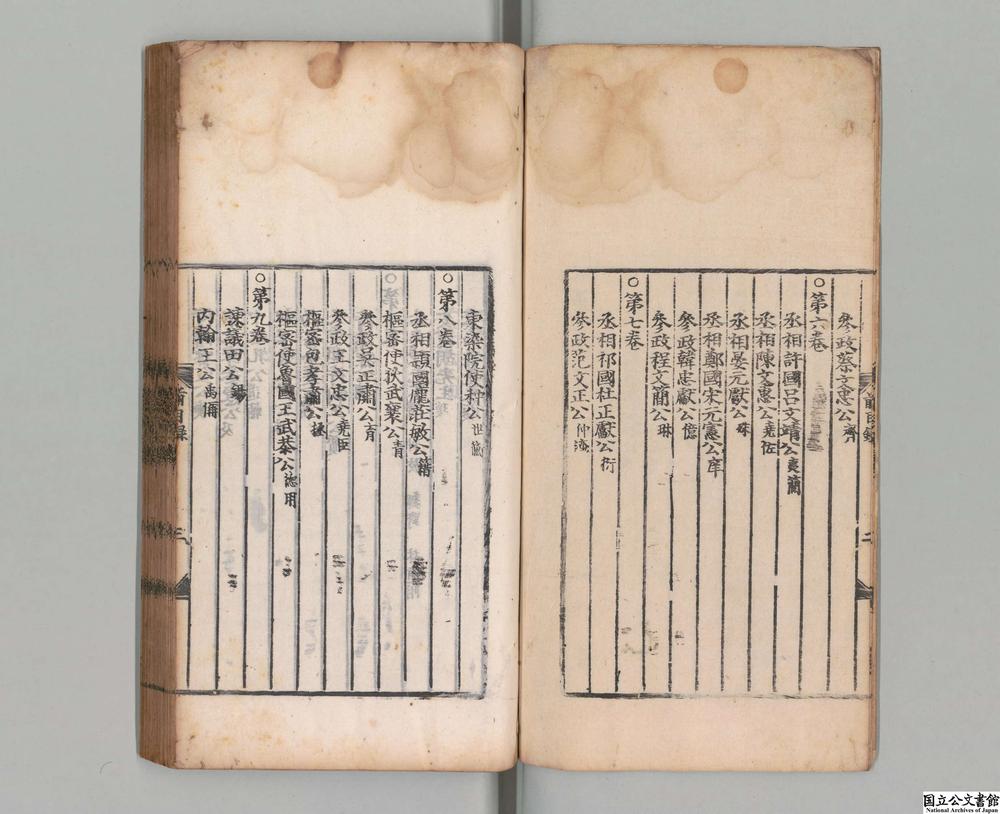 參政蔡文惠公齊
○第六卷
丞相許國呂文靖公夷簡
丞相陳文惠公堯佐
丞相晏元獻公殊
丞相鄭國宋元憲公庠
參政韓忠獻公億
參政程文簡公琳
○第七卷
丞相祁國杜正獻公衍
參政范文正公仲淹
東染院使种公世衡
○第八卷
丞相潁國龐莊敏公籍
樞密使狄武襄公青
參政吳正肅公育
參政王文忠公堯臣
樞密包孝肅公拯
樞密使魯國王武恭公德用
○第九卷
諫議田公錫
內翰王公禹偁
前目錄
二
三
国立公文書館
National Archives of Japan